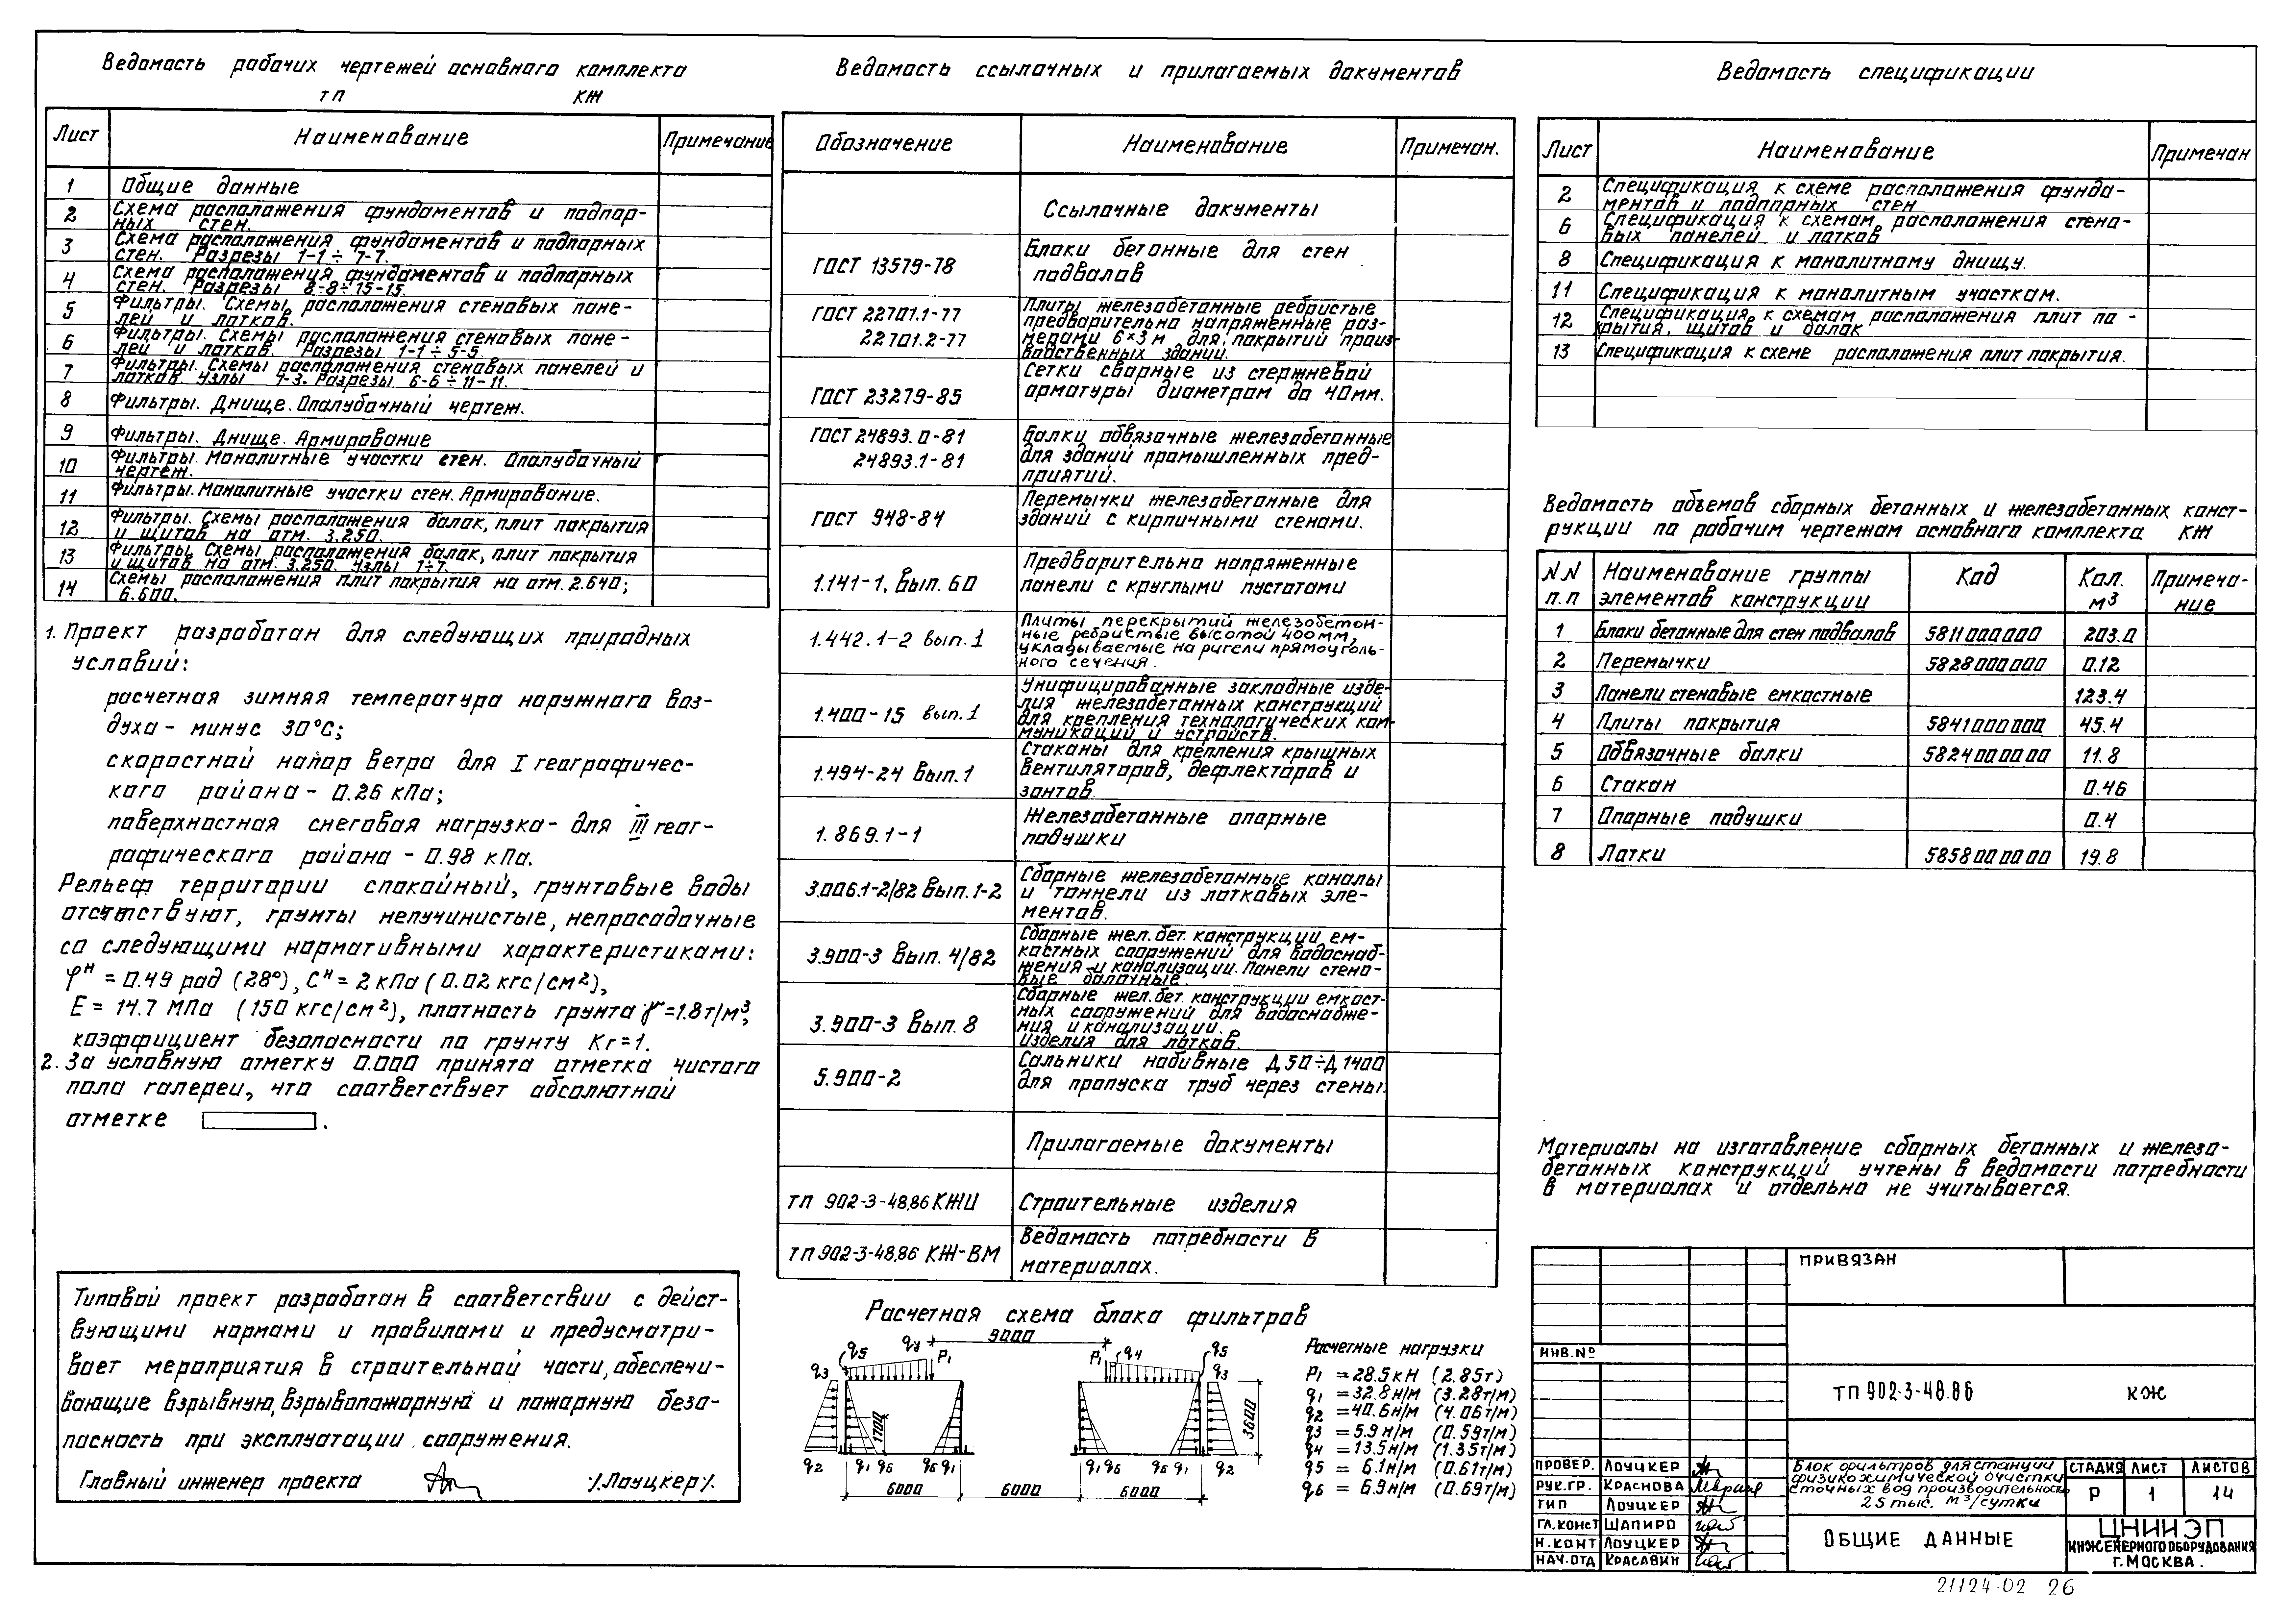 Ведомость рабочих чертежей основного комплекта
ТП КЖ
Лист Наименование Примечание
1 Общие данные
2 Схема расположения фундаментов и подпор-
ных стен.
3 Схема расположения фундаментов и подпорных
стен. Разрезы 1-1÷7-7.
4 Схема расположения фундаментов и подпорных
стен. Разрезы 8-8÷15-15.
5 Фильтры. Схемы расположения стеновых пане-
лей и лотков.
6 Фильтры. Схемы расположения стеновых пане-
лей и лотков. Разрезы 1-1÷5-5.
7 Фильтры. Схемы расположения стеновых панелей и
лотков. Узлы 1-3. Разрезы 6-6÷11-11.
8 Фильтры. Днище. Опалубочный чертеж.
9 Фильтры. Днище. Армирование
10 Фильтры. Монолитные участки стен. Опалубочный
чертеж.
11 Фильтры. Монолитные участки стен. Армирование.
12 Фильтры. Схемы расположения балок, плит покрытия
и щитов на отм. 3.250.
13 Фильтры. Схемы расположения балок, плит покрытия
и щитов на отм. 3.250. Узлы 1÷7.
14 Схемы расположения плит покрытия на отм. 2.640;
6.600.
1. Проект разработан для следующих природных
условий:
расчетная зимняя температура наружного воз-
духа - минус 30°С;
скоростной напор ветра для I географичес-
кого района - 0.26 кПа;
поверхностная снеговая нагрузка - для III геог-
рафического района - 0.98 кПа.
Рельеф территории спокойный, грунтовые воды
отсутствуют, грунты непучинистые, непросадочные
со следующими нормативными характеристиками:
φн = 0.49 рад (28°), Cн = 2 кПа (0.02 кгс/см²),
E = 14.7 МПа (150 кгс/см²), плотность грунта γ=1.8т/м³,
коэффициент безопасности по грунту Кг=1.
2. За условную отметку 0.000 принята отметка чистого
пола галереи, что соответствует абсолютной
отметке .
Типовой проект разработан в соответствии с дейст-
вующими нормами и правилами и предусматри-
вает мероприятия в строительной части, обеспечи-
вающие взрывную, взрывопожарную и пожарную безо-
пасность при эксплуатации сооружения.
Главный инженер проекта /Лоуцкер/.
Ведомость ссылочных и прилагаемых документов
Обозначение Наименование Примечан.
Ссылочные документы
ГОСТ 13579-78 Блоки бетонные для стен
подвалов
ГОСТ 22701.1-77 Плиты железобетонные ребристые
22701.2-77 предварительно напряженные раз-
мерами 6×3м для покрытий произ-
водственных зданий.
ГОСТ 23279-85 Сетки сварные из стержневой
арматуры диаметром до 40мм.
ГОСТ 24893.0-81 Балки обвязочные железобетонные
24893.1-81 для зданий промышленных пред-
приятий.
ГОСТ 948-84 Перемычки железобетонные для
зданий с кирпичными стенами.
1.141-1, Вып. 60 Предварительно напряженные
панели с круглыми пустотами
1.442.1-2 вып.1 Плиты перекрытий железобетон-
ные ребристые высотой 400мм,
укладываемые на ригели прямоуголь-
ного сечения.
1.400-15 вып.1 Унифицированные закладные изде-
лия железобетонных конструкций
для крепления технологических ком-
муникаций и устройств.
1.494-24 Вып.1 Стаканы для крепления крышных
вентиляторов, дефлекторов и
зонтов.
1.869.1-1 Железобетонные опорные
подушки
3.006.1-2/82 Вып.1-2 Сборные железобетонные каналы
и тоннели из лотковых эле-
ментов.
3.900-3 Вып. 4/82 Сборные жел.бет. конструкции ем-
костных сооружений для водоснаб-
жения и канализации. Панели стено-
вые балочные.
3.900-3 Вып. 8 Сборные жел.бет. конструкции емкост-
ных сооружений для водоснабже-
ния и канализации.
Изделия для лотков.
5.900-2 Сальники набивные Д50÷Д1400
для пропуска труб через стены.
Прилагаемые документы
ТП 902-3-48.86 КЖИ Строительные изделия
ТП 902-3-48.86 КЖ-ВМ Ведомость потребности в
материалах.
Расчетная схема блока фильтров
9000
q5 qy P1 P1 q4 q5
q3 q3
1700 3600
q2 q1 q6 q6 q1 q1 q6 q6 q1 q2
6000 6000 6000
Расчетные нагрузки
P1 = 28.5 кН (2.85т)
q1 = 32.8 н/м (3.28т/м)
q2 = 40.6 н/м (4.06т/м)
q3 = 5.9 н/м (0.59т/м)
q4 = 13.5 н/м (1.35т/м)
q5 = 6.1 н/м (0.61т/м)
q6 = 6.9 н/м (0.69т/м)
Ведомость спецификации
Лист Наименование Примечан
2 Спецификация к схеме расположения фунда-
ментов и подпорных стен
6 Спецификация к схемам расположения стено-
вых панелей и лотков
8 Спецификация к монолитному днищу.
11 Спецификация к монолитным участкам.
12 Спецификация к схемам расположения плит по-
крытия, щитов и балок
13 Спецификация к схеме расположения плит покрытия.
Ведомость объемов сборных бетонных и железобетонных конст-
рукции по рабочим чертежам основного комплекта КЖ
NN п.п Наименование группы элементов конструкции Код Кол. м³ Примеча-ние
1 Блоки бетонные для стен подвалов 5811000000 203.0
2 Перемычки 5828000000 0.12
3 Панели стеновые емкостные 123.4
4 Плиты покрытия 5841000000 45.4
5 Обвязочные балки 5824000000 11.8
6 Стакан 0.46
7 Опорные подушки 0.4
8 Лотки 5858000000 19.8
Материалы на изготовление сборных бетонных и железо-
бетонных конструкций учтены в ведомости потребности
в материалах и отдельно не учитывается.
ПРИВЯЗАН
ИНВ.№
ТП 902-3-48.86 КЖ
ПРОВЕР. ЛОУЦКЕР
РУК.ГР. КРАСНОВА
ГИП ЛОУЦКЕР
ГЛ.КОНСТ ШАПИРО
Н.КОНТ ЛОУЦКЕР
НАЧ.ОТД КРАСАВИН
Блок фильтров для станции
физикохимической очистки
сточных вод производительность
25 тыс. м³/сутки
СТАДИЯ ЛИСТ ЛИСТОВ
Р 1 14
ОБЩИЕ ДАННЫЕ
ЦНИИЭП
ИНЖЕНЕРНОГО ОБОРУДОВАНИЯ
Г. МОСКВА.
21124-02 26